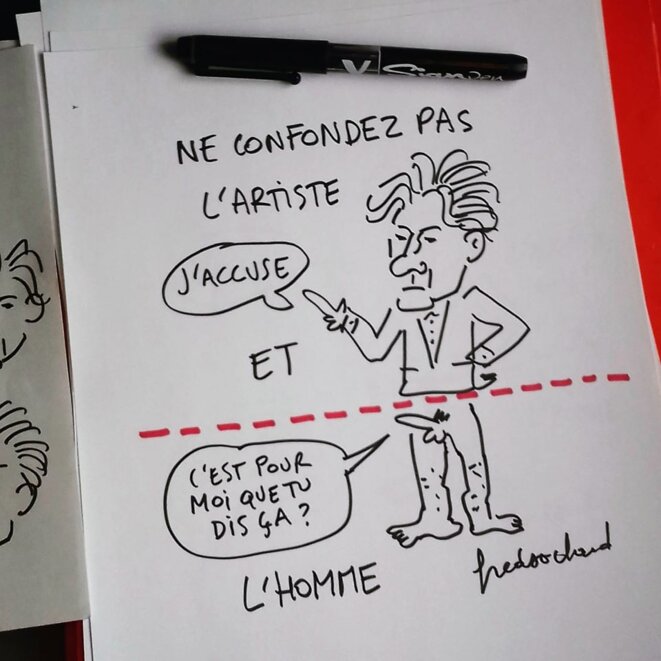 V Sign Pen
NE CONFONDEZ PAS
L'ARTISTE
J'ACCUSE
ET
C'EST POUR
MOI QUE TU
DIS ÇA ?
L'HOMME